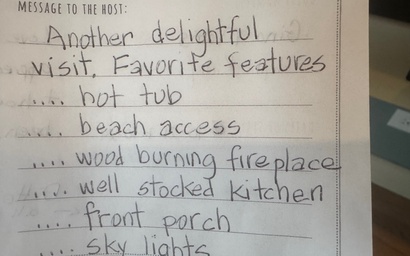 MESSAGE TO THE HOST:
Another delightful
visit. Favorite features
.... hot tub
.... beach access
.... wood burning fireplace
.... well stocked kitchen
.... front porch
.... sky lights